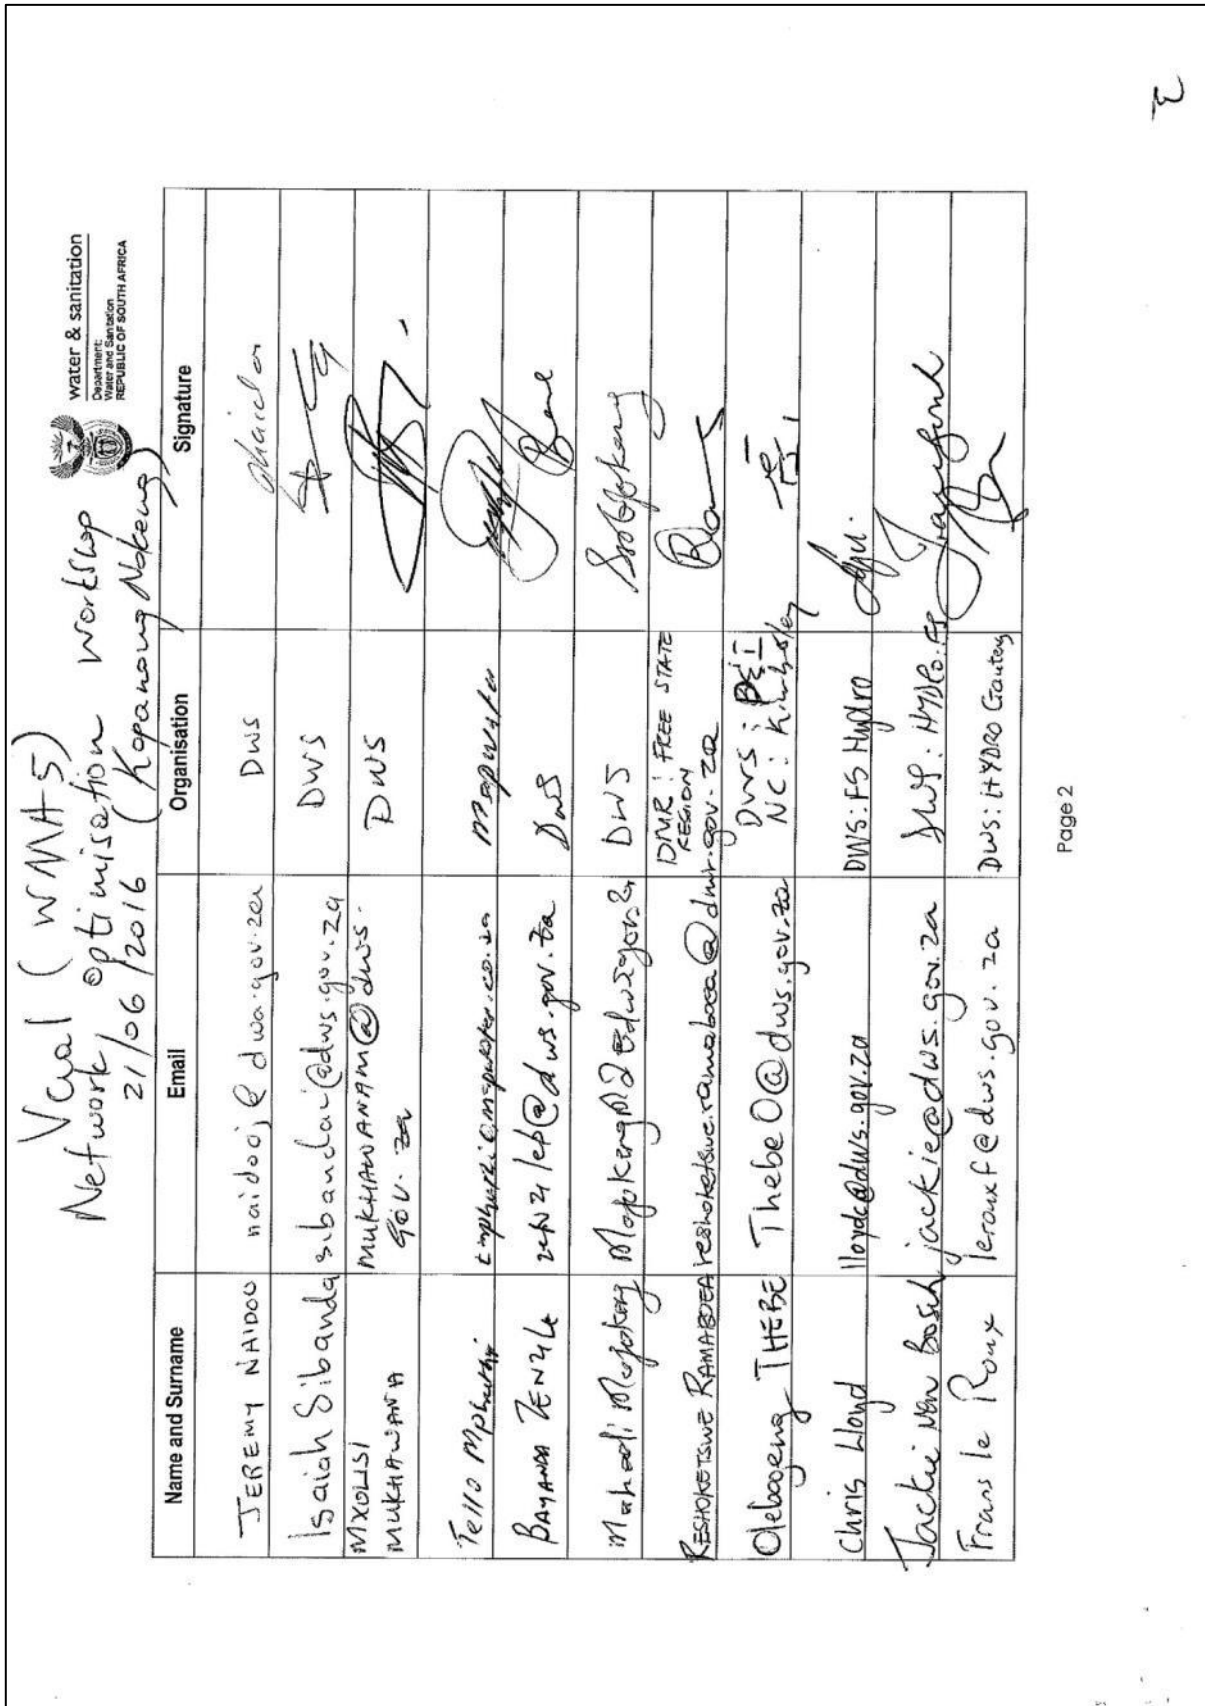 Vaal (WMA 5)
Network optimisation Workshop
21/06/2016 (Kopanong Nokeng)
water & sanitation
Department:
Water and Sanitation
REPUBLIC OF SOUTH AFRICA
Name and Surname Email Organisation Signature
JEREMY NAIDOO naidooj@dwa.gov.za DWS
Isaiah Sibanda sibandai@dws.gov.za DWS
MXOLISI MUKHAWANAM@dws. DWS
MUKHAWANA gov.za
Tello Mphuthi
BAYANDA ZENZILE @dws.gov.za DWS
DWS
RESHOKETSWE RAMABOEA reshoketswe.ramaboea@dmr.gov.za DMR: FREE STATE
REGION
Olebogeng THEBE ThebeO@dws.gov.za DWS:
NC: Kimberley
Chris Lloyd lloydc@dws.gov.za DWS: FS Hydro
Jackie van Bosch jackie@dws.gov.za DWS: HYDRO. FS
Frans le Roux lerouxf@dws.gov.za DWS: HYDRO Gauteng
Page 2